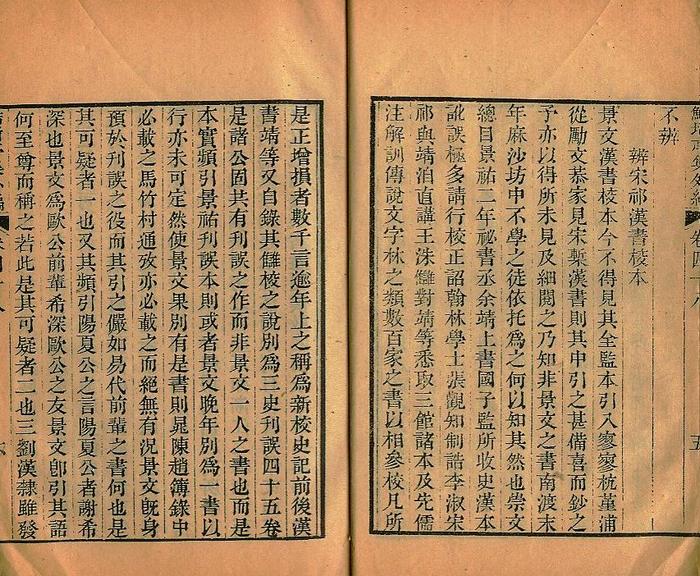 不辨
辨宋祁漢書校本
景文漢書校本今不得見其全監本引入寥寥杭堇浦
從勵文恭家見宋槧漢書則其中引之甚備喜而鈔之
予亦以得所未見及細閱之乃知非景文之書南渡末
年麻沙坊中不學之徒依托爲之何以知其然也崇文
總目景祐二年祕書丞余靖上書國子監所收史漢本
訛誤極多請行校正詔翰林學士張觀知制誥李淑宋
祁與靖洎直講王洙讎對靖等悉取三館諸本及先儒
注解訓傳說文字林之類數百家之書以相參校凡所
五
是正增損者數千言逾年上之稱爲新校史記前後漢
書靖等又自錄其讎校之說別爲三史刊誤四十五卷
是諸公固共有刊誤之作而非景文一人之書也而是
本實頻引景祐刊誤本則或者景文晚年別爲一書以
行亦未可定然使景文果別有是書則晁陳趙簿錄中
必載之馬竹村通攷亦必載之而絕無有况景文旣身
預於刊誤之役而其引之儼如易代前輩之書何也是
其可疑者一也又其頻引陽夏公之言陽夏公者謝希
深也景文爲歐公前輩希深歐公之友景文卽引其語
何至尊而稱之若此是其可疑者二也三劉漢隸雖發